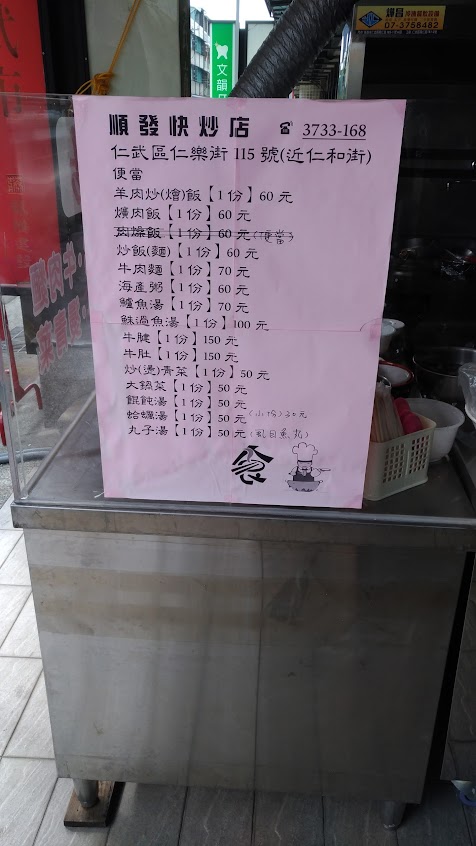 文韻牙
07-3756482
順發快炒店 ☎ 3733-168
仁武區仁樂街 115 號(近仁和街)
便當
羊肉炒(燴)飯【1份】60 元
爌肉飯【1份】60 元
肉燥飯【1份】60 元(便當)
炒飯(麵)【1份】60 元
牛肉麵【1份】70 元
海產粥【1份】60 元
鱸魚湯【1份】70 元
酥過魚湯【1份】100 元
牛腱【1份】150 元
牛肚【1份】150 元
炒(燙)青菜【1份】50 元
大鍋菜【1份】50 元
餛飩湯【1份】50 元
蛤蠣湯【1份】50 元 30元
丸子湯【1份】50 元(虱目魚丸)
食
牛肉麵